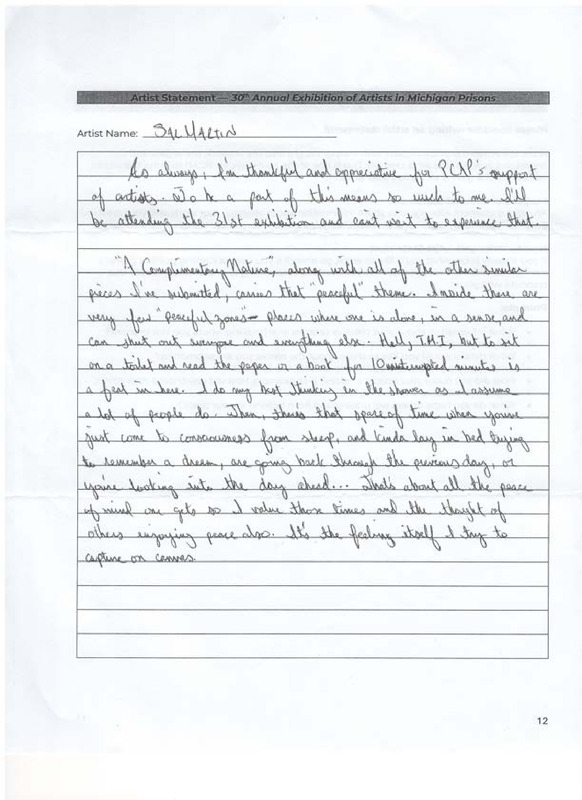 Artist Statement — 30th Annual Exhibition of Artists in Michigan Prisons
Artist Name: SAL MARTIN
As always, I'm thankful and appreciative for PCAP's support
of artists. To be a part of this means so much to me. I'll
be attending the 31st exhibition and can't wait to experience that.
"A Complimentary Nature", along with all of the other similar
pieces I've submitted, carries that "peaceful" theme. Inside there are
very few "peaceful zones" – places where one is alone, in a sense, and
can shut out everyone and everything else. Hell, T.M.I., but to sit
on a toilet and read the paper or a book for 10 uninterrupted minutes is
a feat in here. I do my best thinking in the shower as I assume
a lot of people do. Then, there's that space of time when you've
just come to consciousness from sleep, and kinda lay in bed trying
to remember a dream, are going back through the previous day, or
you're looking into the day ahead... That's about all the peace
of mind one gets so I value those times and the thought of
others enjoying peace also. It's the feeling itself I try to
capture on canvas.
12